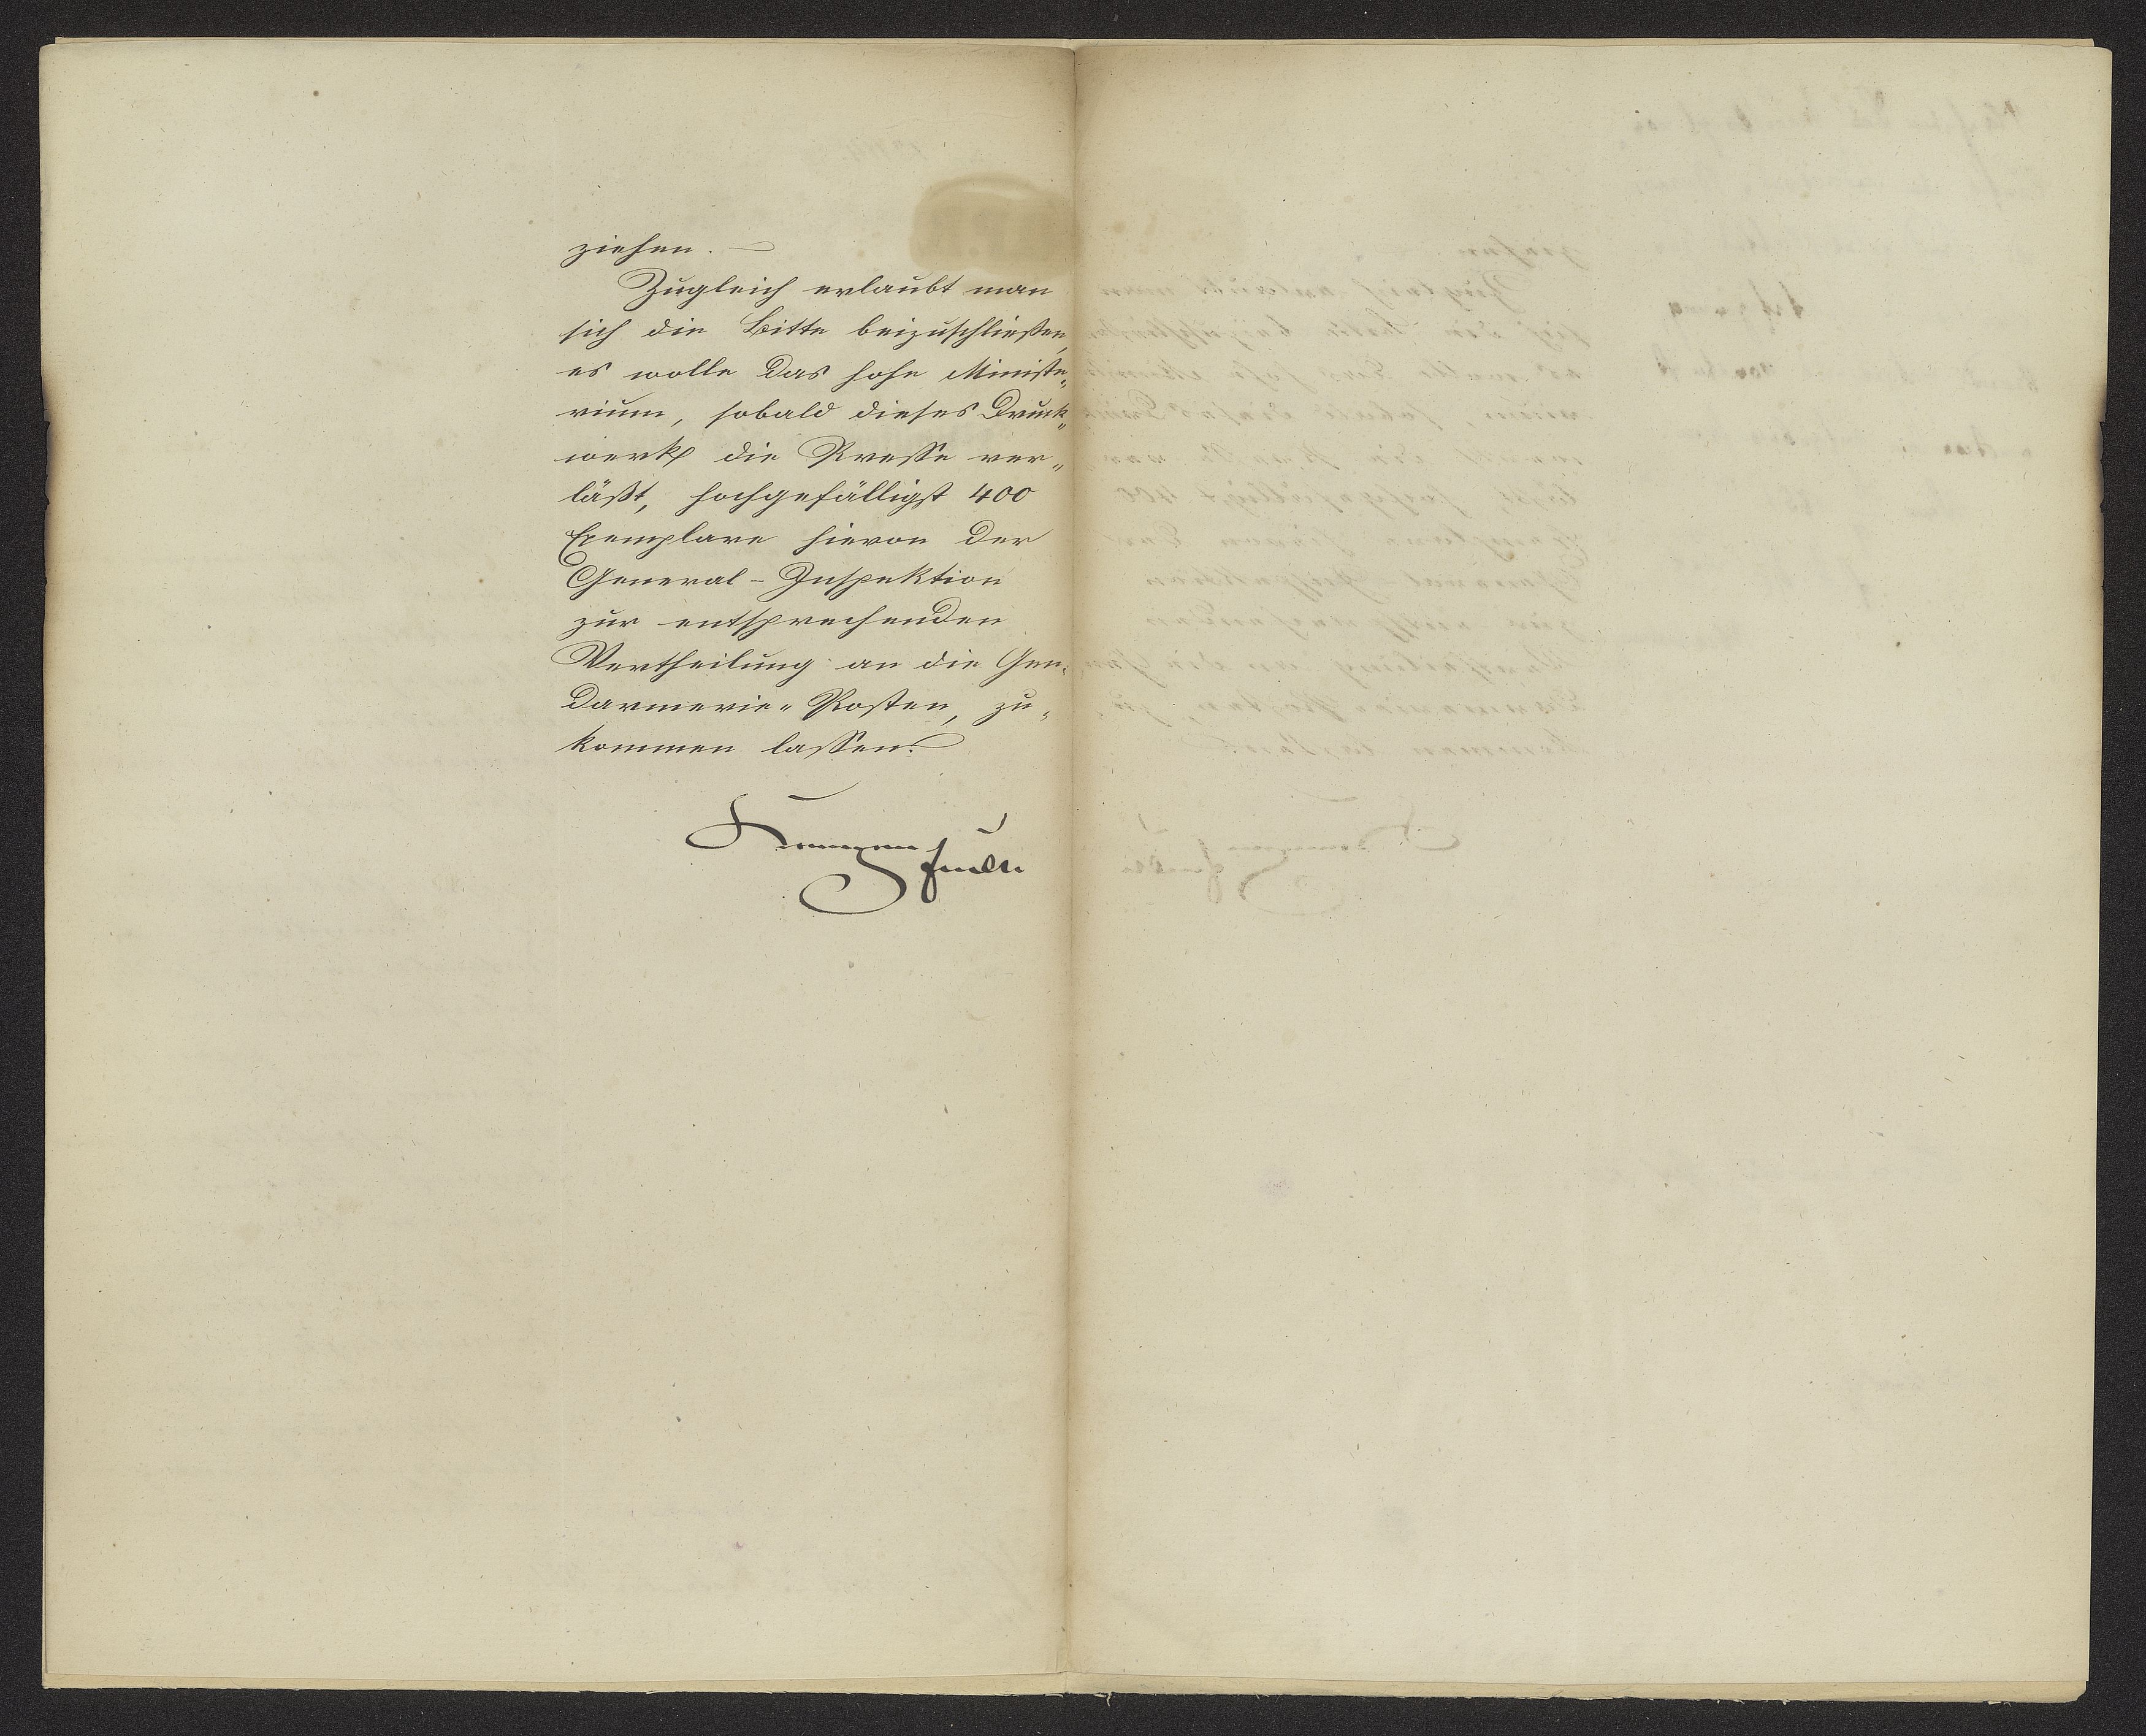 ziehen. —
Zugleich erlaubt man
sich die Bitte beizuschließen,
es wolle das hohe Ministe„
rium, sobald dieses Druck„
werk die Presse ver„
läßt, hochgefälligst 400
Exemplare hievon der
General-Inspektion
zur entsprechenden
Vertheilung an die Gen„
darmerie„Posten, zu„
kommen lassen.